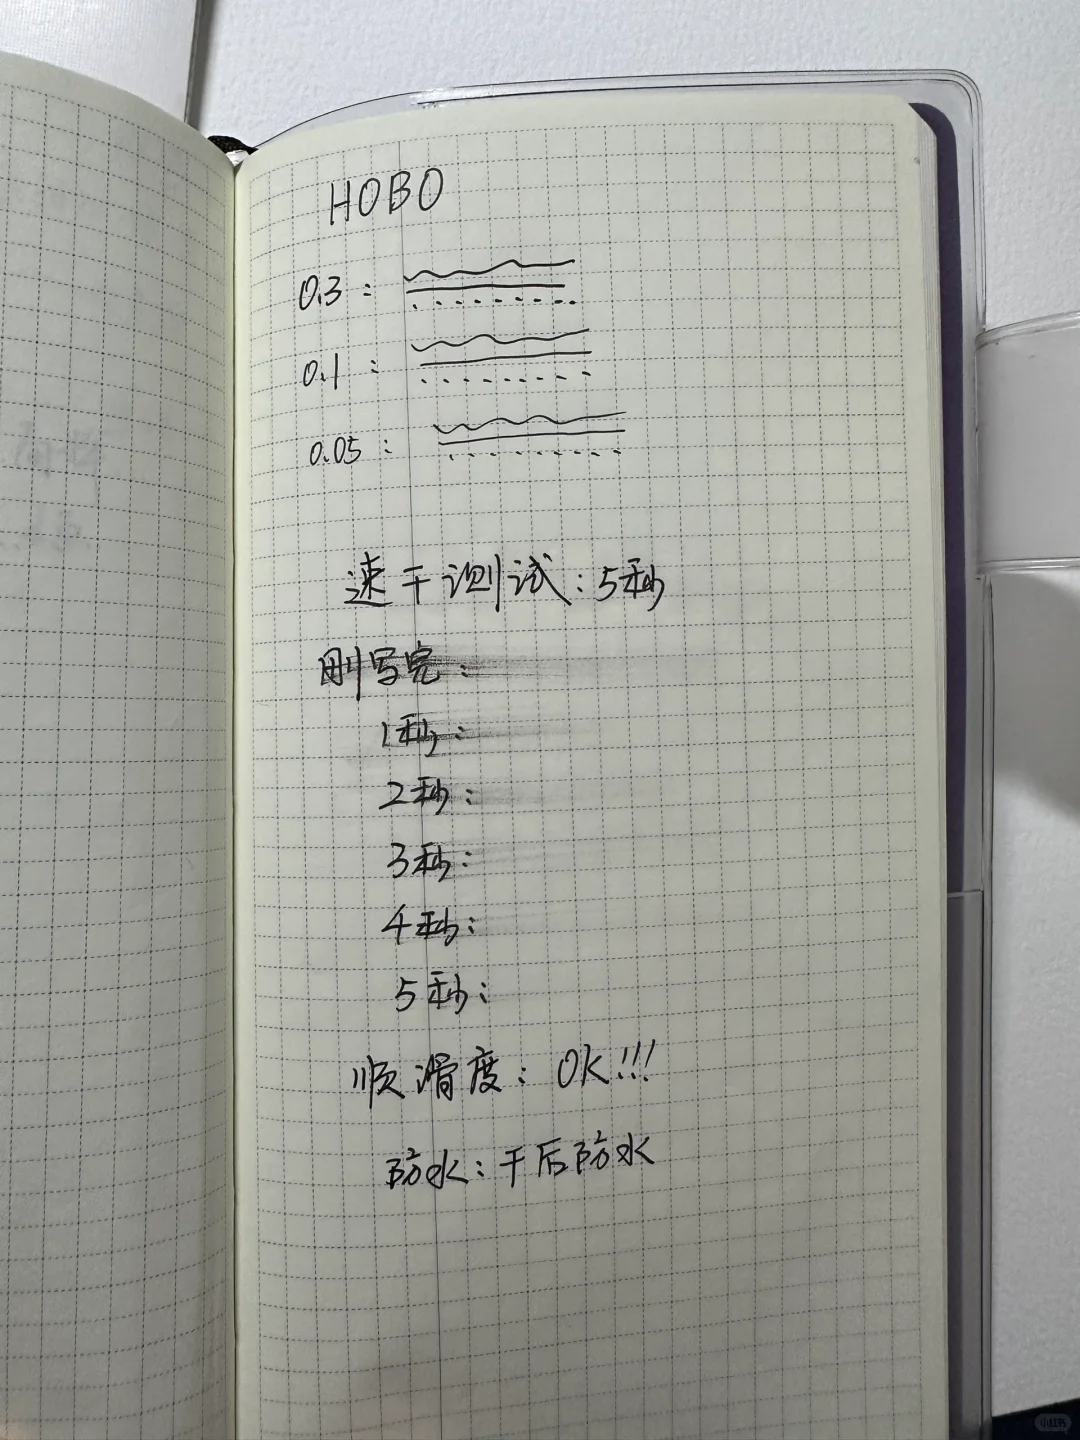 HOBO
0.3：
0.1：
0.05：
速干测试：5秒
刚写完：
1秒：
2秒：
3秒：
4秒：
5秒：
顺滑度：OK!!!
防水：干后防水
小红书